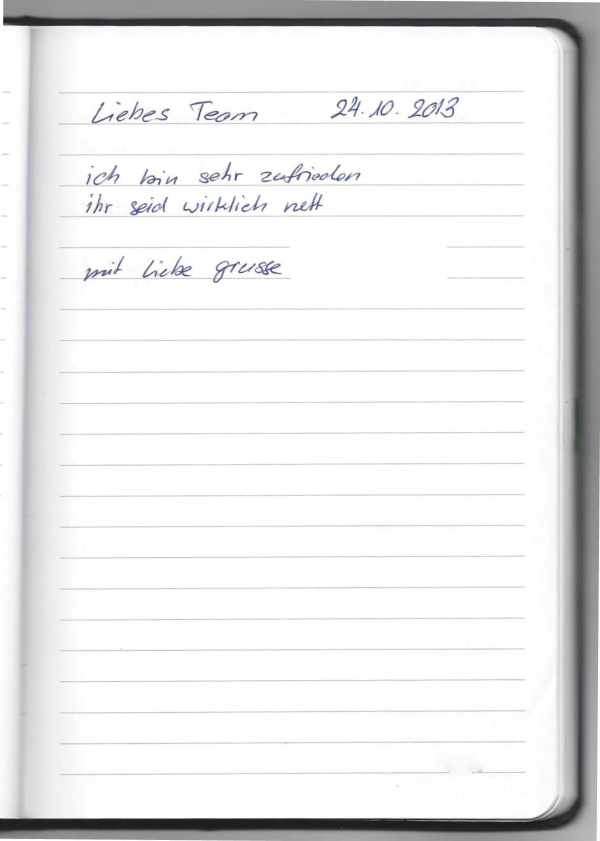 Liebes Team 24.10.2013
ich bin sehr zufrieden
ihr seid wirklich nett
mit liebe grusse